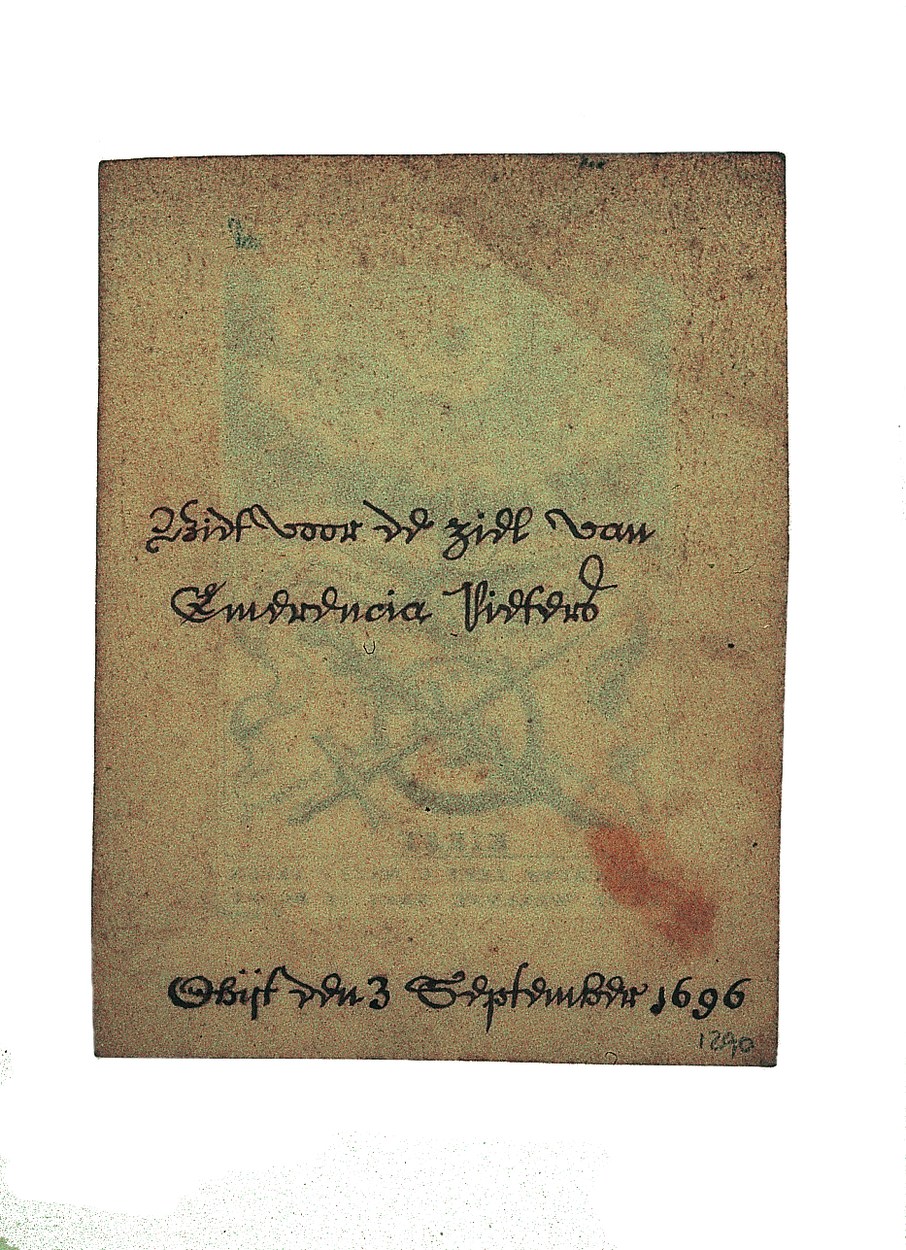 Bidt voor de ziel van
Emerencia Pieters
Obijt den 3 September 1696
1290